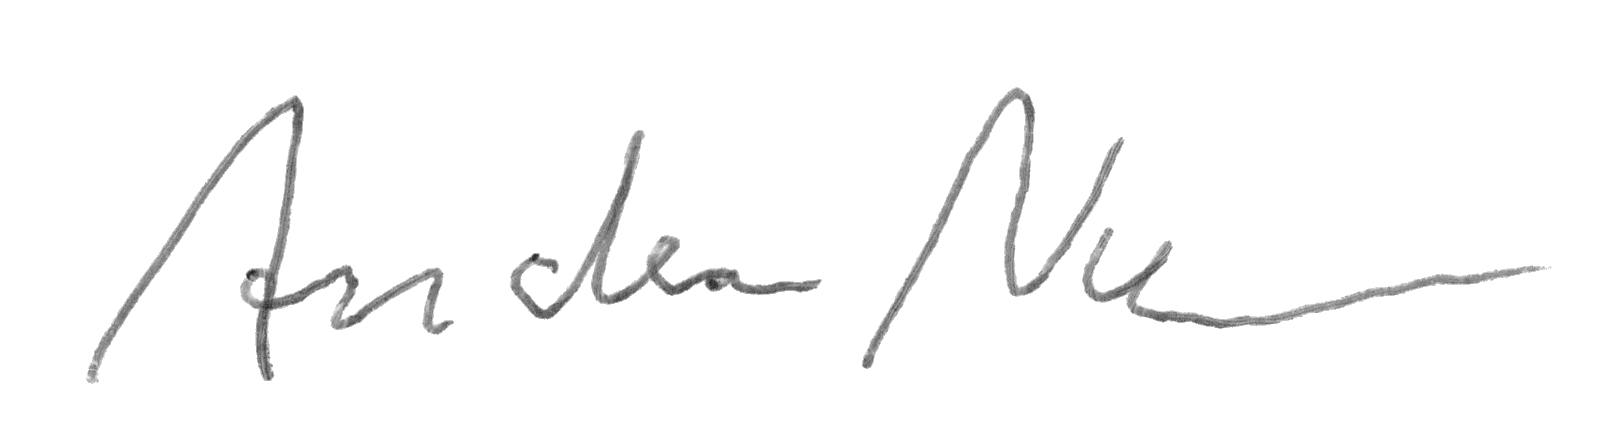 Andrea Nu